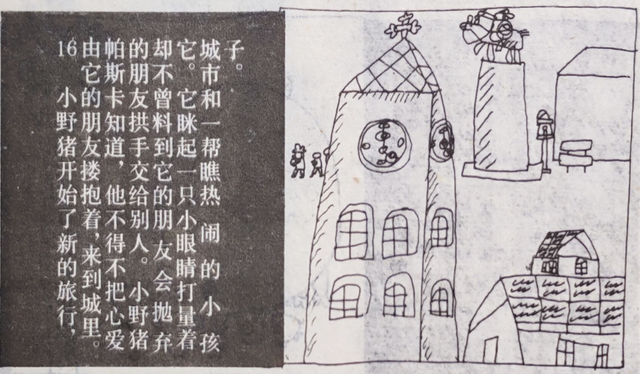 16 小野猪开始了新的旅行，
由它的朋友搂抱着，来到城里。
帕斯卡知道，他不得不把心爱
的朋友拱手交给别人。小野猪
却不曾料到它的朋友会抛弃
它。它眯起一只小眼睛打量着
城市和一帮瞧热闹的小孩
子。